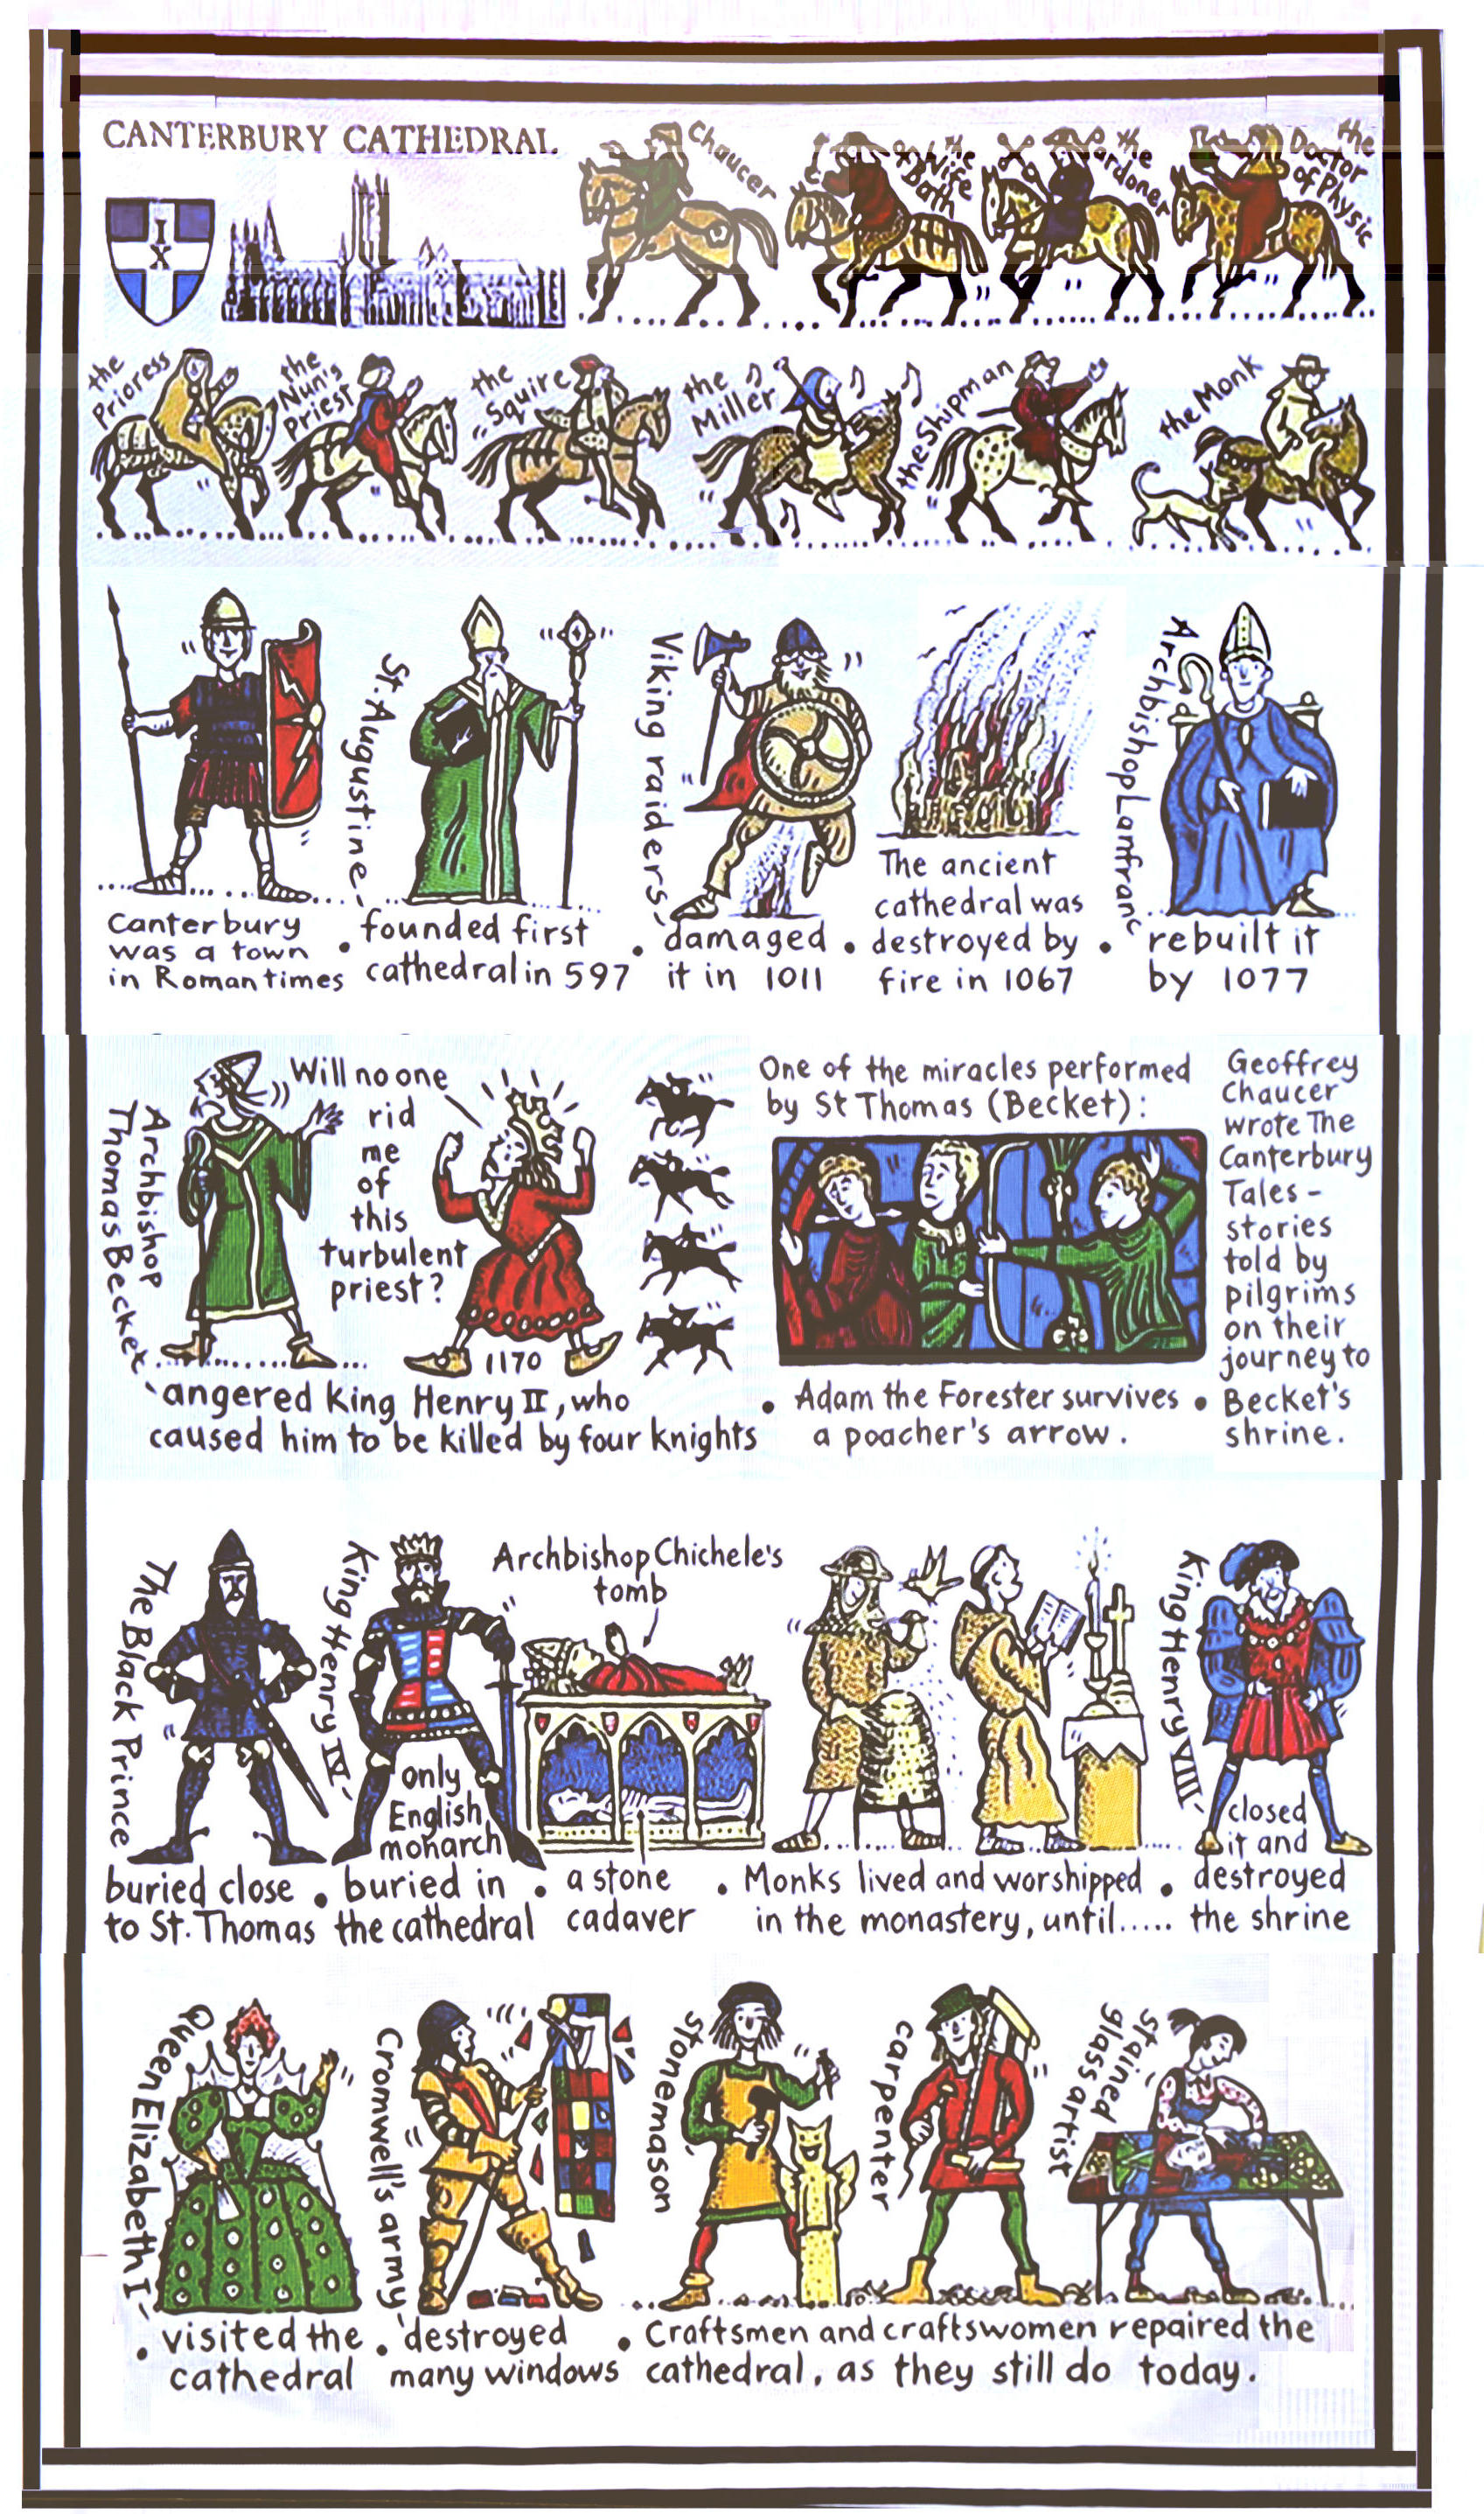 CANTERBURY CATHEDRAL
I
X
Chaucer
the Wife
of Bath
the
Pardoner
the
Doctor
of Physic
the
Prioress
the
Nun's
Priest
the
Squire
the
Miller
the Shipman
the Monk
Canterbury
was a town
in Roman times
St. Augustine
founded first
cathedral in 597
Viking raiders
damaged
it in 1011
The ancient
cathedral was
destroyed by
fire in 1067
Archbishop Lanfranc
rebuilt it
by 1077
Archbishop
Thomas Becket
Will no one
rid
me
of
this
turbulent
priest?
1170
angered King Henry II, who
caused him to be killed by four knights
One of the miracles performed
by St Thomas (Becket):
Adam the Forester survives
a poacher's arrow.
Geoffrey
Chaucer
wrote The
Canterbury
Tales -
stories
told by
pilgrims
on their
journey to
Becket's
shrine.
The Black Prince
buried close
to St. Thomas
King Henry IV -
only
English
monarch
buried in
the cathedral
Archbishop Chichele's
tomb
a stone
cadaver
Monks lived and worshipped
in the monastery, until.....
King Henry VIII -
closed
it and
destroyed
the shrine
Queen Elizabeth I -
visited the
cathedral
Cromwell's army -
destroyed
many windows
stonemason
carpenter
stained
glass artist
Craftsmen and craftswomen repaired the
cathedral, as they still do today.